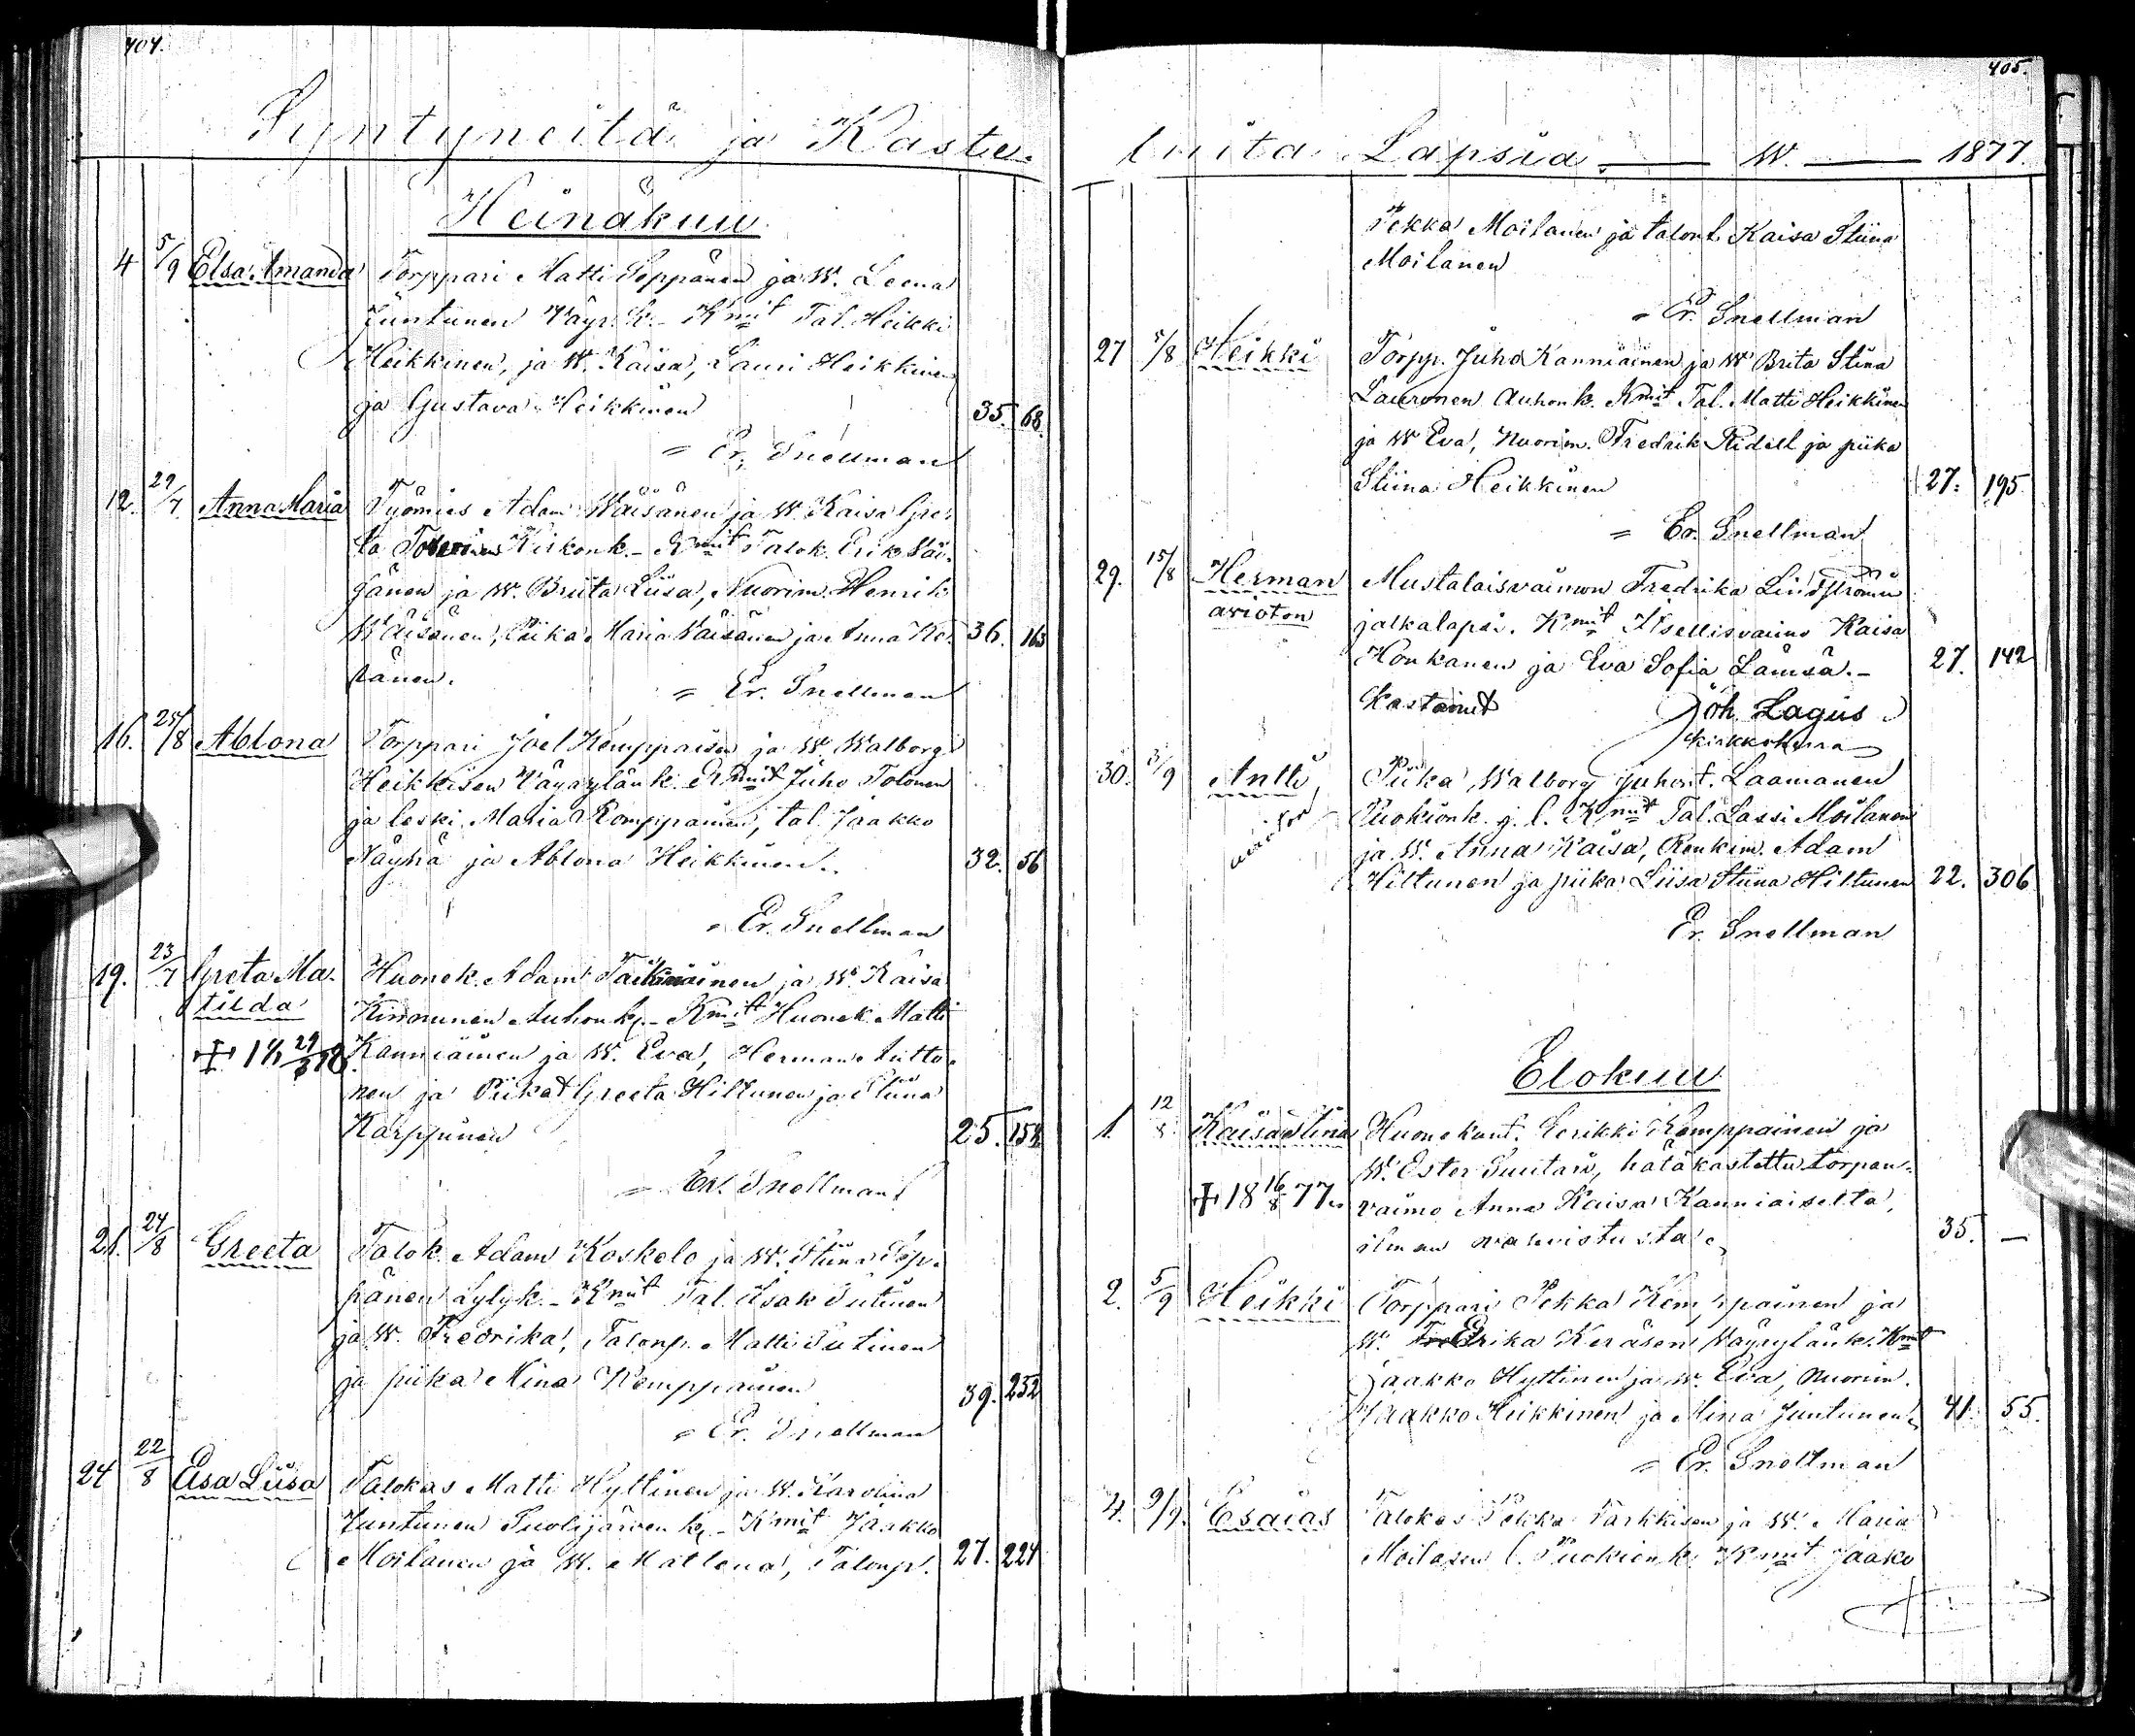 404.
Syntyneitä ja Kastet-
Heinäkuu
4 5/9 Elsa Amanda Torppari Matti Seppänen ja W. Leena
Juntunen Väyr. k. - Kmit Tal. Heikki
Heikkinen, ja W. Kaisa, Lauri Heikkinen
ja Gustava Heikkinen 35. 68.
= Er. Snellman
12. 29/7. Anna Maria Työmies Adam Wäisänen ja W. Kaisa Gre-
ta Kirkonk. - Kmit Talok. Erik Väi-
sänen ja W. Briita Liisa, Nuorim. Henrik
Wäisänen, Piika Maria Väisänen ja Anna Ke- 36. 163
ränen.
= Er. Snellman
16. 25/8 Ablona Torppari Joel Kemppaisen ja W. Walborg
Heikkisen Väyrylän k. Kmit Juho Tolonen
ja leski Maria Komppainen, tal. Jaakko
Näyhä ja Ablona Heikkinen. 32. 56
= Er. Snellman
19. 23/7 Greta Ma-
tilda Huonek. Adam ja W. Kaisa
Kinnunen Auhon k. - Kmit Huonek. Matti
+ 18 29/3 78. Kanniainen ja W. Eva, Herman Autto-
nen ja Piikat Greeta Hiltunen ja Stiina
Karppinen 25. 154
= Er. Snellman
21. 24/8 Greeta Talok. Adam Koskelo ja W. Stiina Sep-
pänen Lylyk. - Kmit Tal. Isak Sutinen
ja W. Fredrika, Talonp. Matti Sutinen
ja piika Mina Kemppainen 39. 232
= Er. Snellman
24 22/8 Elsa Liisa Talokas Matti Hyttinen ja W. Karolina
Juntunen Suolijärven k. - Kmit Jaakko
Moilanen ja W. Matlena, Talonp. 27. 224
405.
tuita Lapsia — W. — 1877.
Pekka Moilanen ja talont. Kaisa Stiina
Moilanen
= Er. Snellman
27 5/8 Heikki Torpp. Juho Kanniainen ja W Brita Stina
Lauronen Auhon k. Kmit Tal. Matti Heikkinen
ja W Eva, Nuorim. Fredrik Ridell ja piika
Stiina Heikkinen 27. 195
= Er. Snellman
29. 15/8 Herman Mustalaisvaimon Fredrika Lindströmin
avioton jalkalapsi. Kmit Itsellisvaimo Kaisa
Honkanen ja Eva Sofia Lämsä. - 27. 142
Kastanut Joh. Lagus
kirkkoherra
30. 3/9 Antti, Piika Walborg Juhont. Laamanen
Puokion k. y. l. Kmit Tal. Lassi Moilanen
ja W. Anna Kaisa, Renkim. Adam
Hiltunen ja piika Liisa Stiina Hiltunen 22. 306
Er. Snellman
Elokuu
1. 12/8 Kaisa Stina Huonekunt. Eerikki Kemppainen ja
W. Ester Suutari, hätäkastettu torpan-
+ 18 16/8 77. vaimo Anna Kaisa Kanniaiselta,
ilman vahvistusta. 35. —
2. 5/9 Heikki Torppari Pekka Kemppainen ja
W. Erika Keräsen Väyrylän k. Kmit
Jaakko Hyttinen ja W. Eva, Nuorim.
Jaakko Heikkinen ja Mina Juntunen. 41. 55.
= Er. Snellman
4. 9/9. Esaias Talokas Pekka Tarkkisen ja W. Maria
Moilasen l. Puokion k. Kmit Jaako